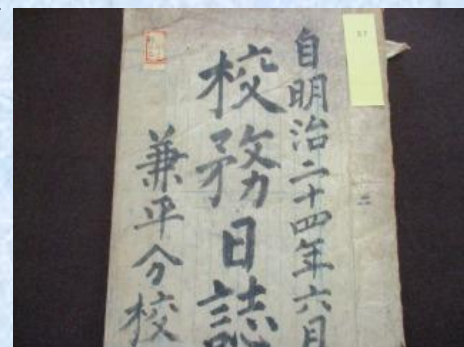 自明治二十四年六月
校務日誌
兼平分校